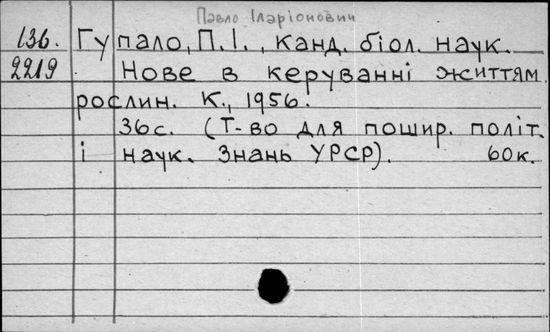 Павло Іларіонович
136. Гупало, П.І., канд. біол. наук.
2219 Нове в керуванні життям
рослин. К., 1956.
36с. (Т-во для пошир. політ.
і наук. Знань УРСР). 60к.